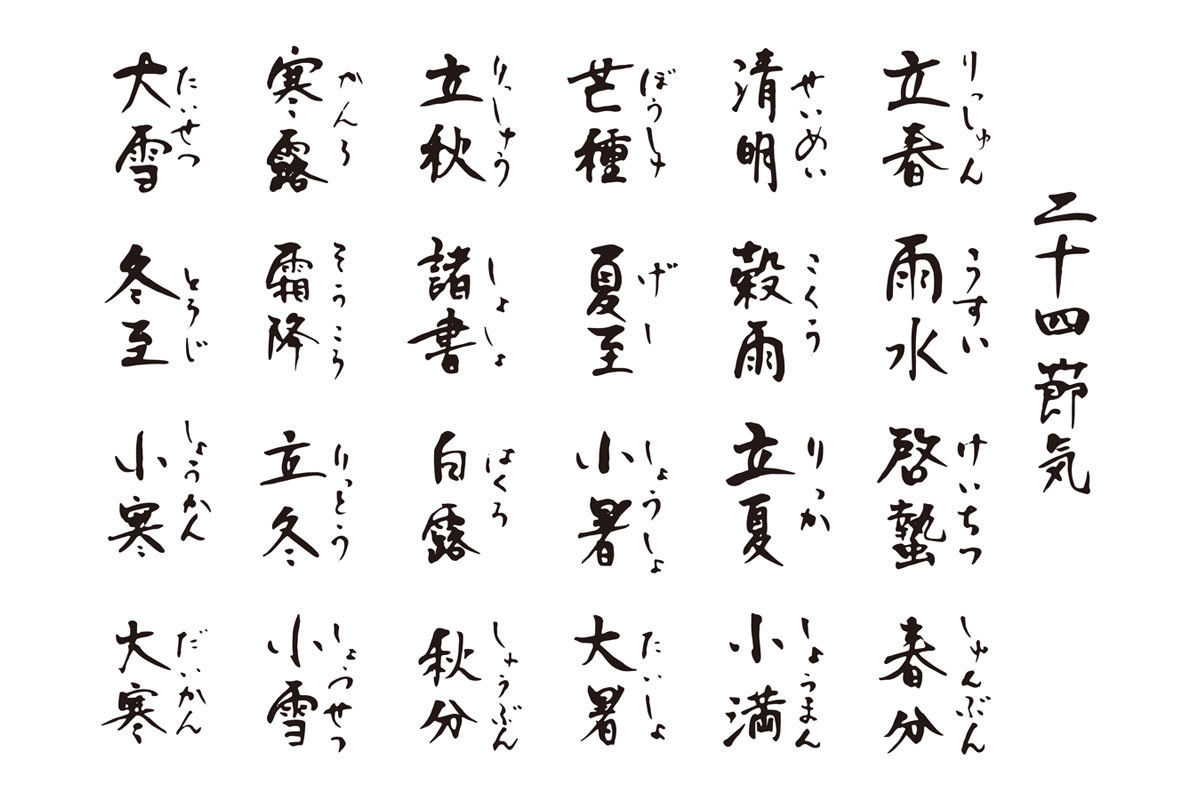 二十四節気
立春
りっしゅん
雨水
うすい
啓蟄
けいちつ
春分
しゅんぶん
清明
せいめい
穀雨
こくう
立夏
りっか
小満
しょうまん
芒種
ぼうしゅ
夏至
げし
小暑
しょうしょ
大暑
たいしょ
立秋
りっしゅう
諸書
しょしょ
白露
はくろ
秋分
しゅうぶん
寒露
かんろ
霜降
そうこう
立冬
りっとう
小雪
しょうせつ
大雪
たいせつ
冬至
とうじ
小寒
しょうかん
大寒
だいかん